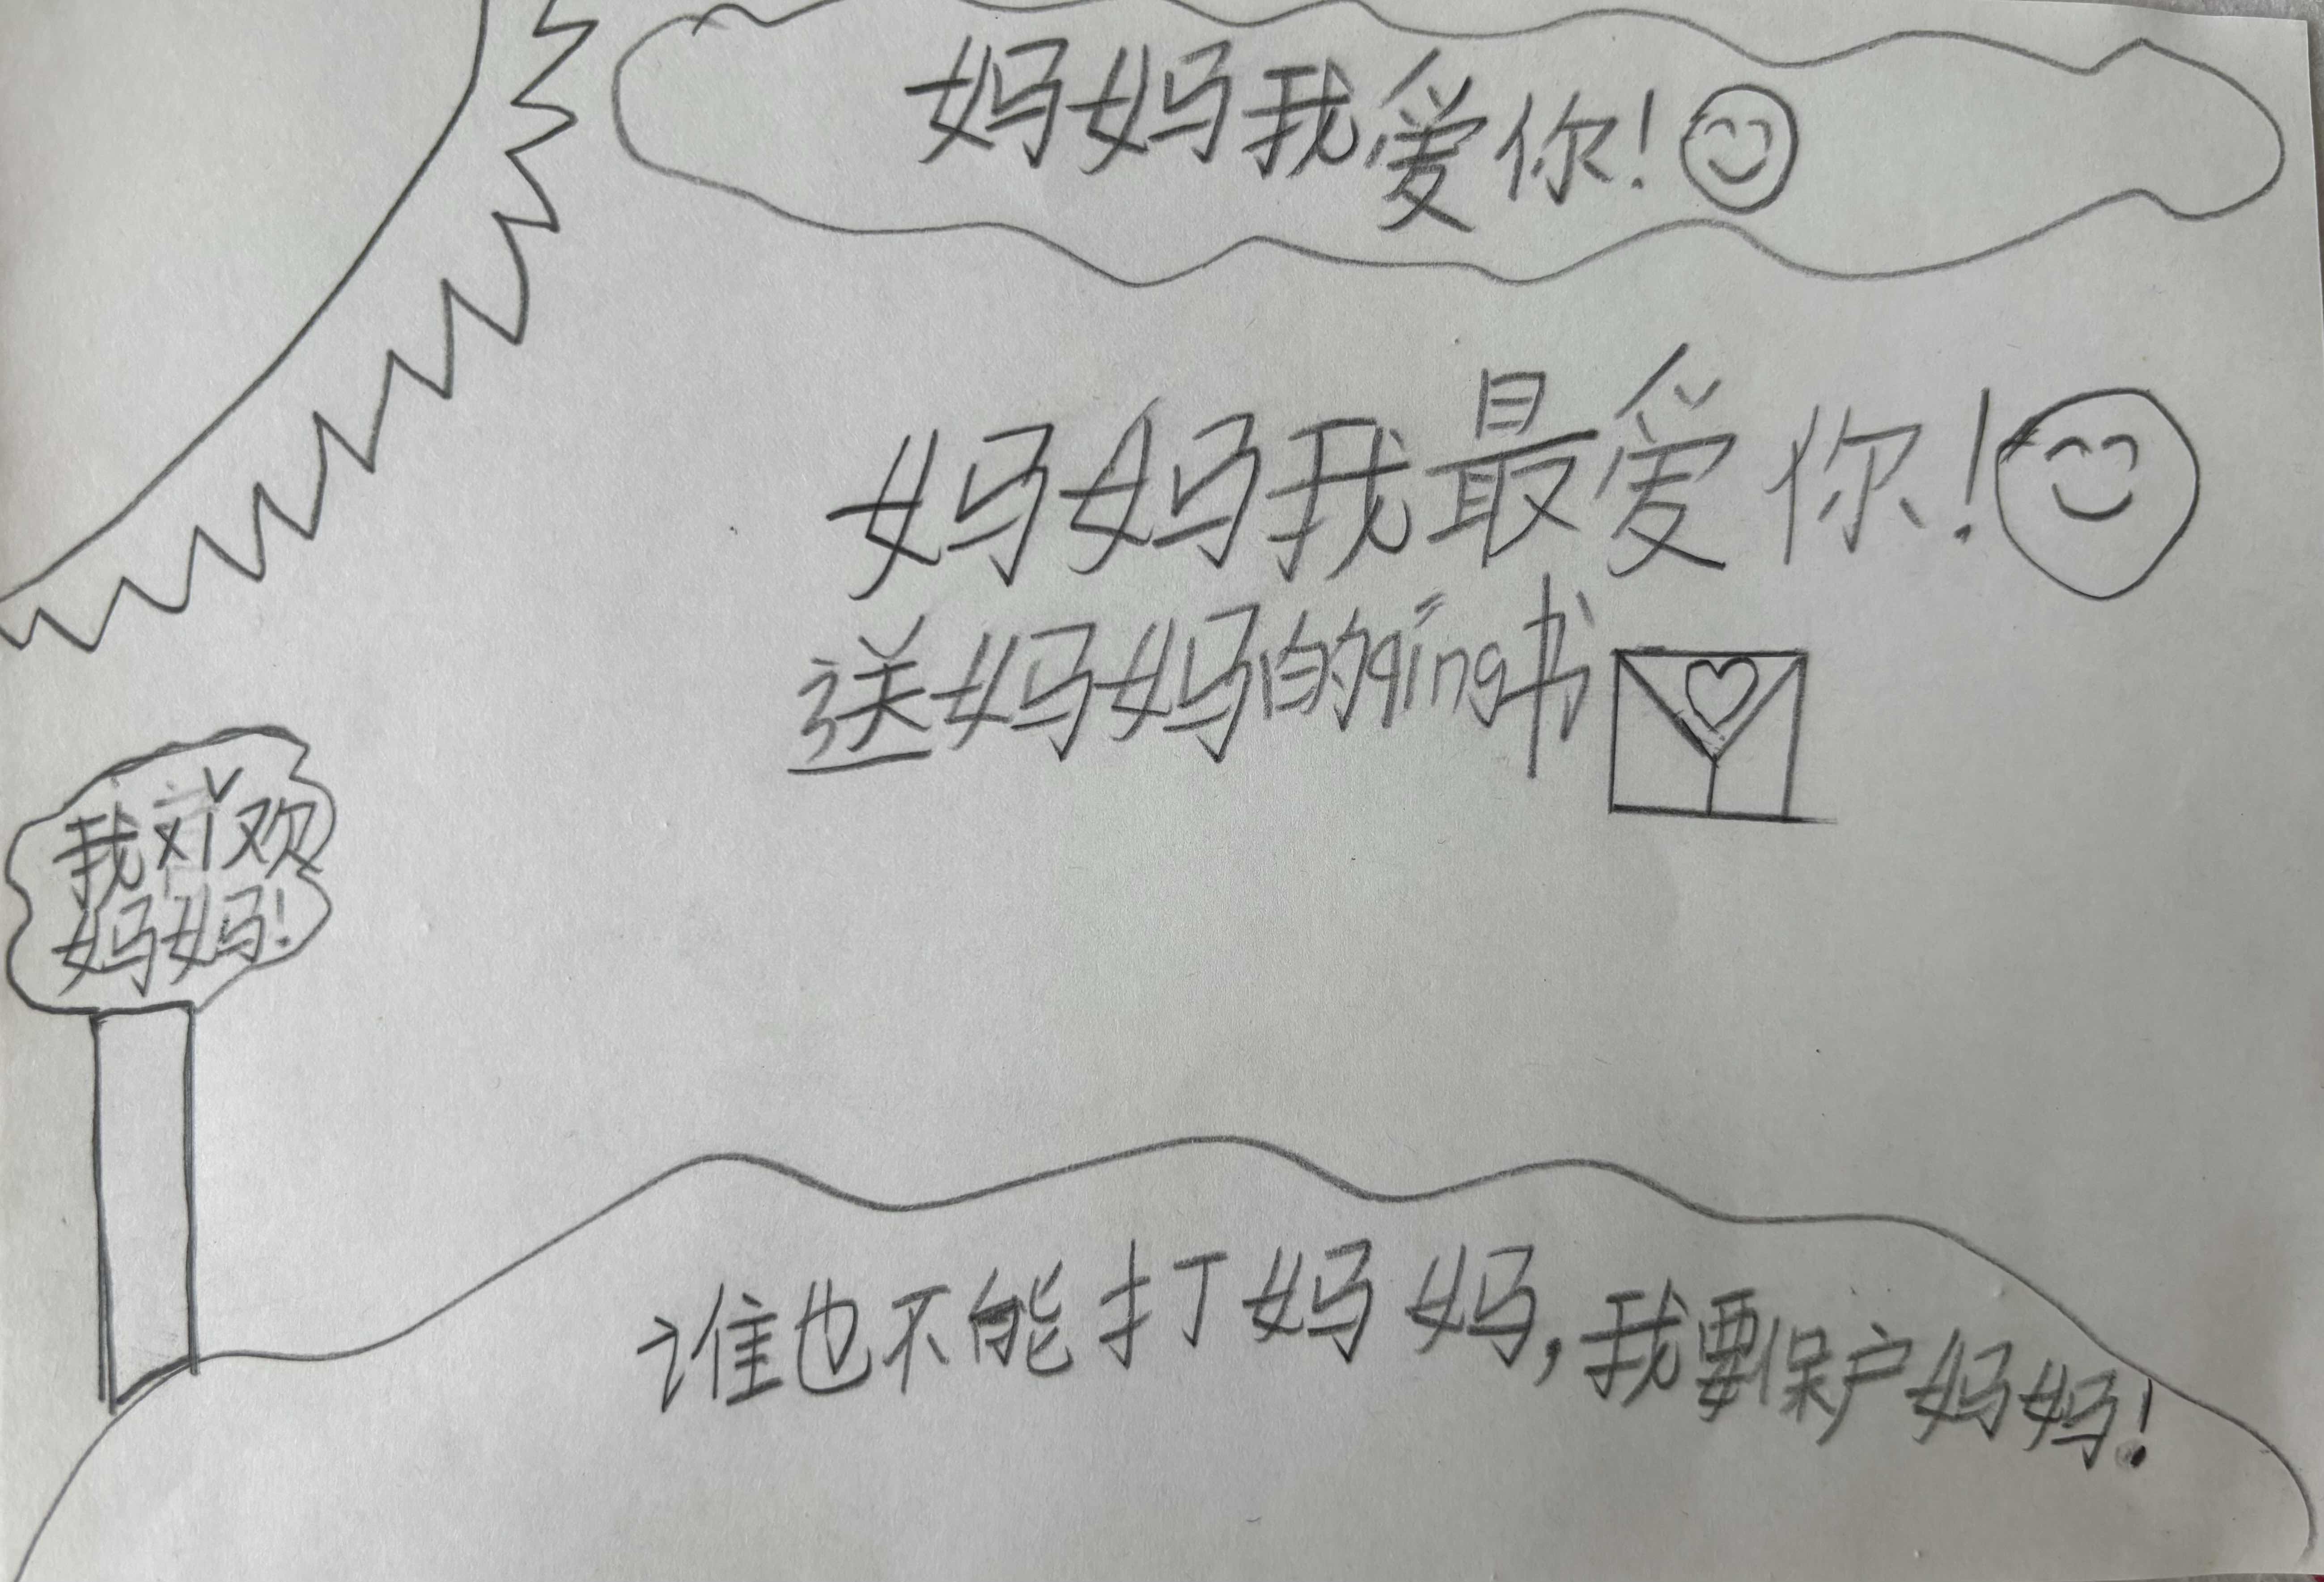 妈妈我爱你!
妈妈我最爱你!
送妈妈的qíng书
我xǐ欢
妈妈!
谁也不能打妈妈,我要保户妈妈!